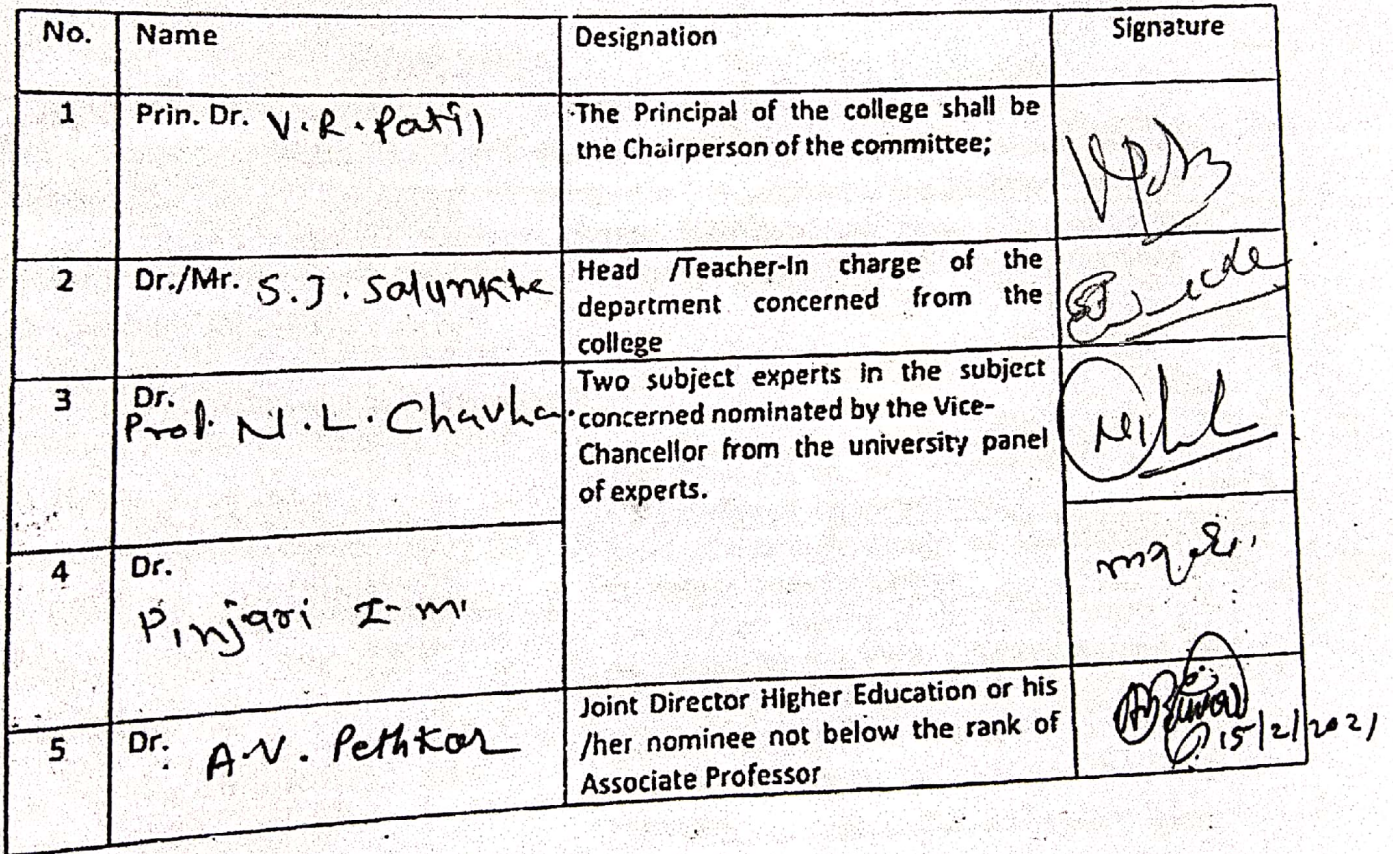 No. Name Designation Signature
1 Prin. Dr. V.R. Patil The Principal of the college shall be
the Chairperson of the committee;
2 Dr./Mr. S.J. Salunkhe Head /Teacher-In charge of the
department concerned from the
college
3 Dr.
Prof. N.L. Chavha Two subject experts in the subject
concerned nominated by the Vice-
Chancellor from the university panel
of experts.
4 Dr.
Pinjari I.M.
5 Dr. A.V. Pethkar Joint Director Higher Education or his
/her nominee not below the rank of
Associate Professor
15/2/2021